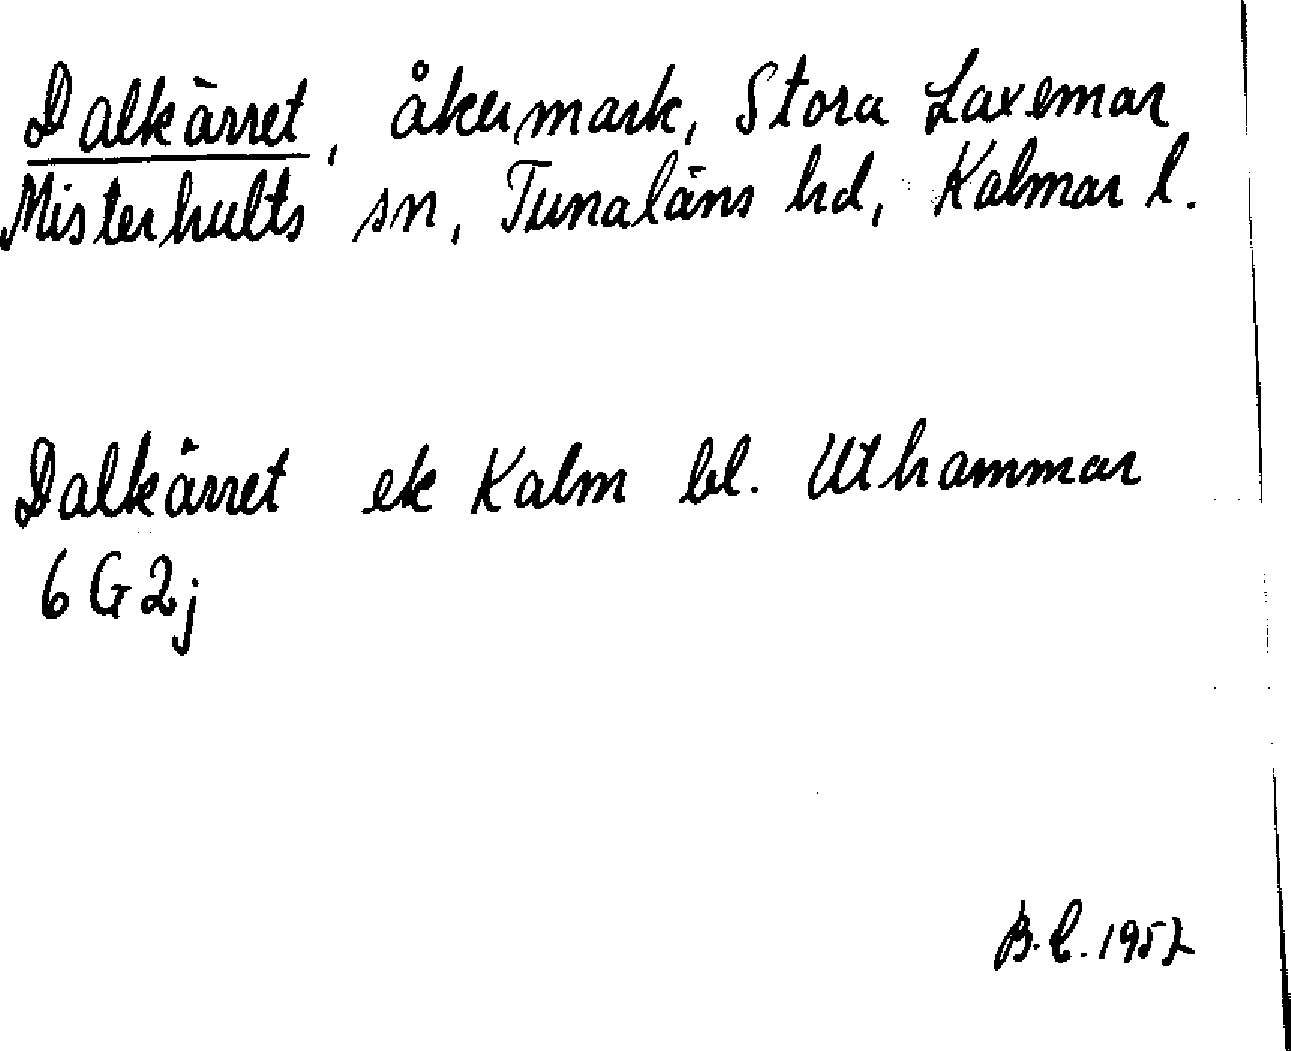 Dalkärret, åkermark, Stora Laxemar
Misterhults sn, Tunaläns hd, Kalmar l.
Dalkärret ek Kalm bl. Uthammar
6 G 2j
B.C. 1957